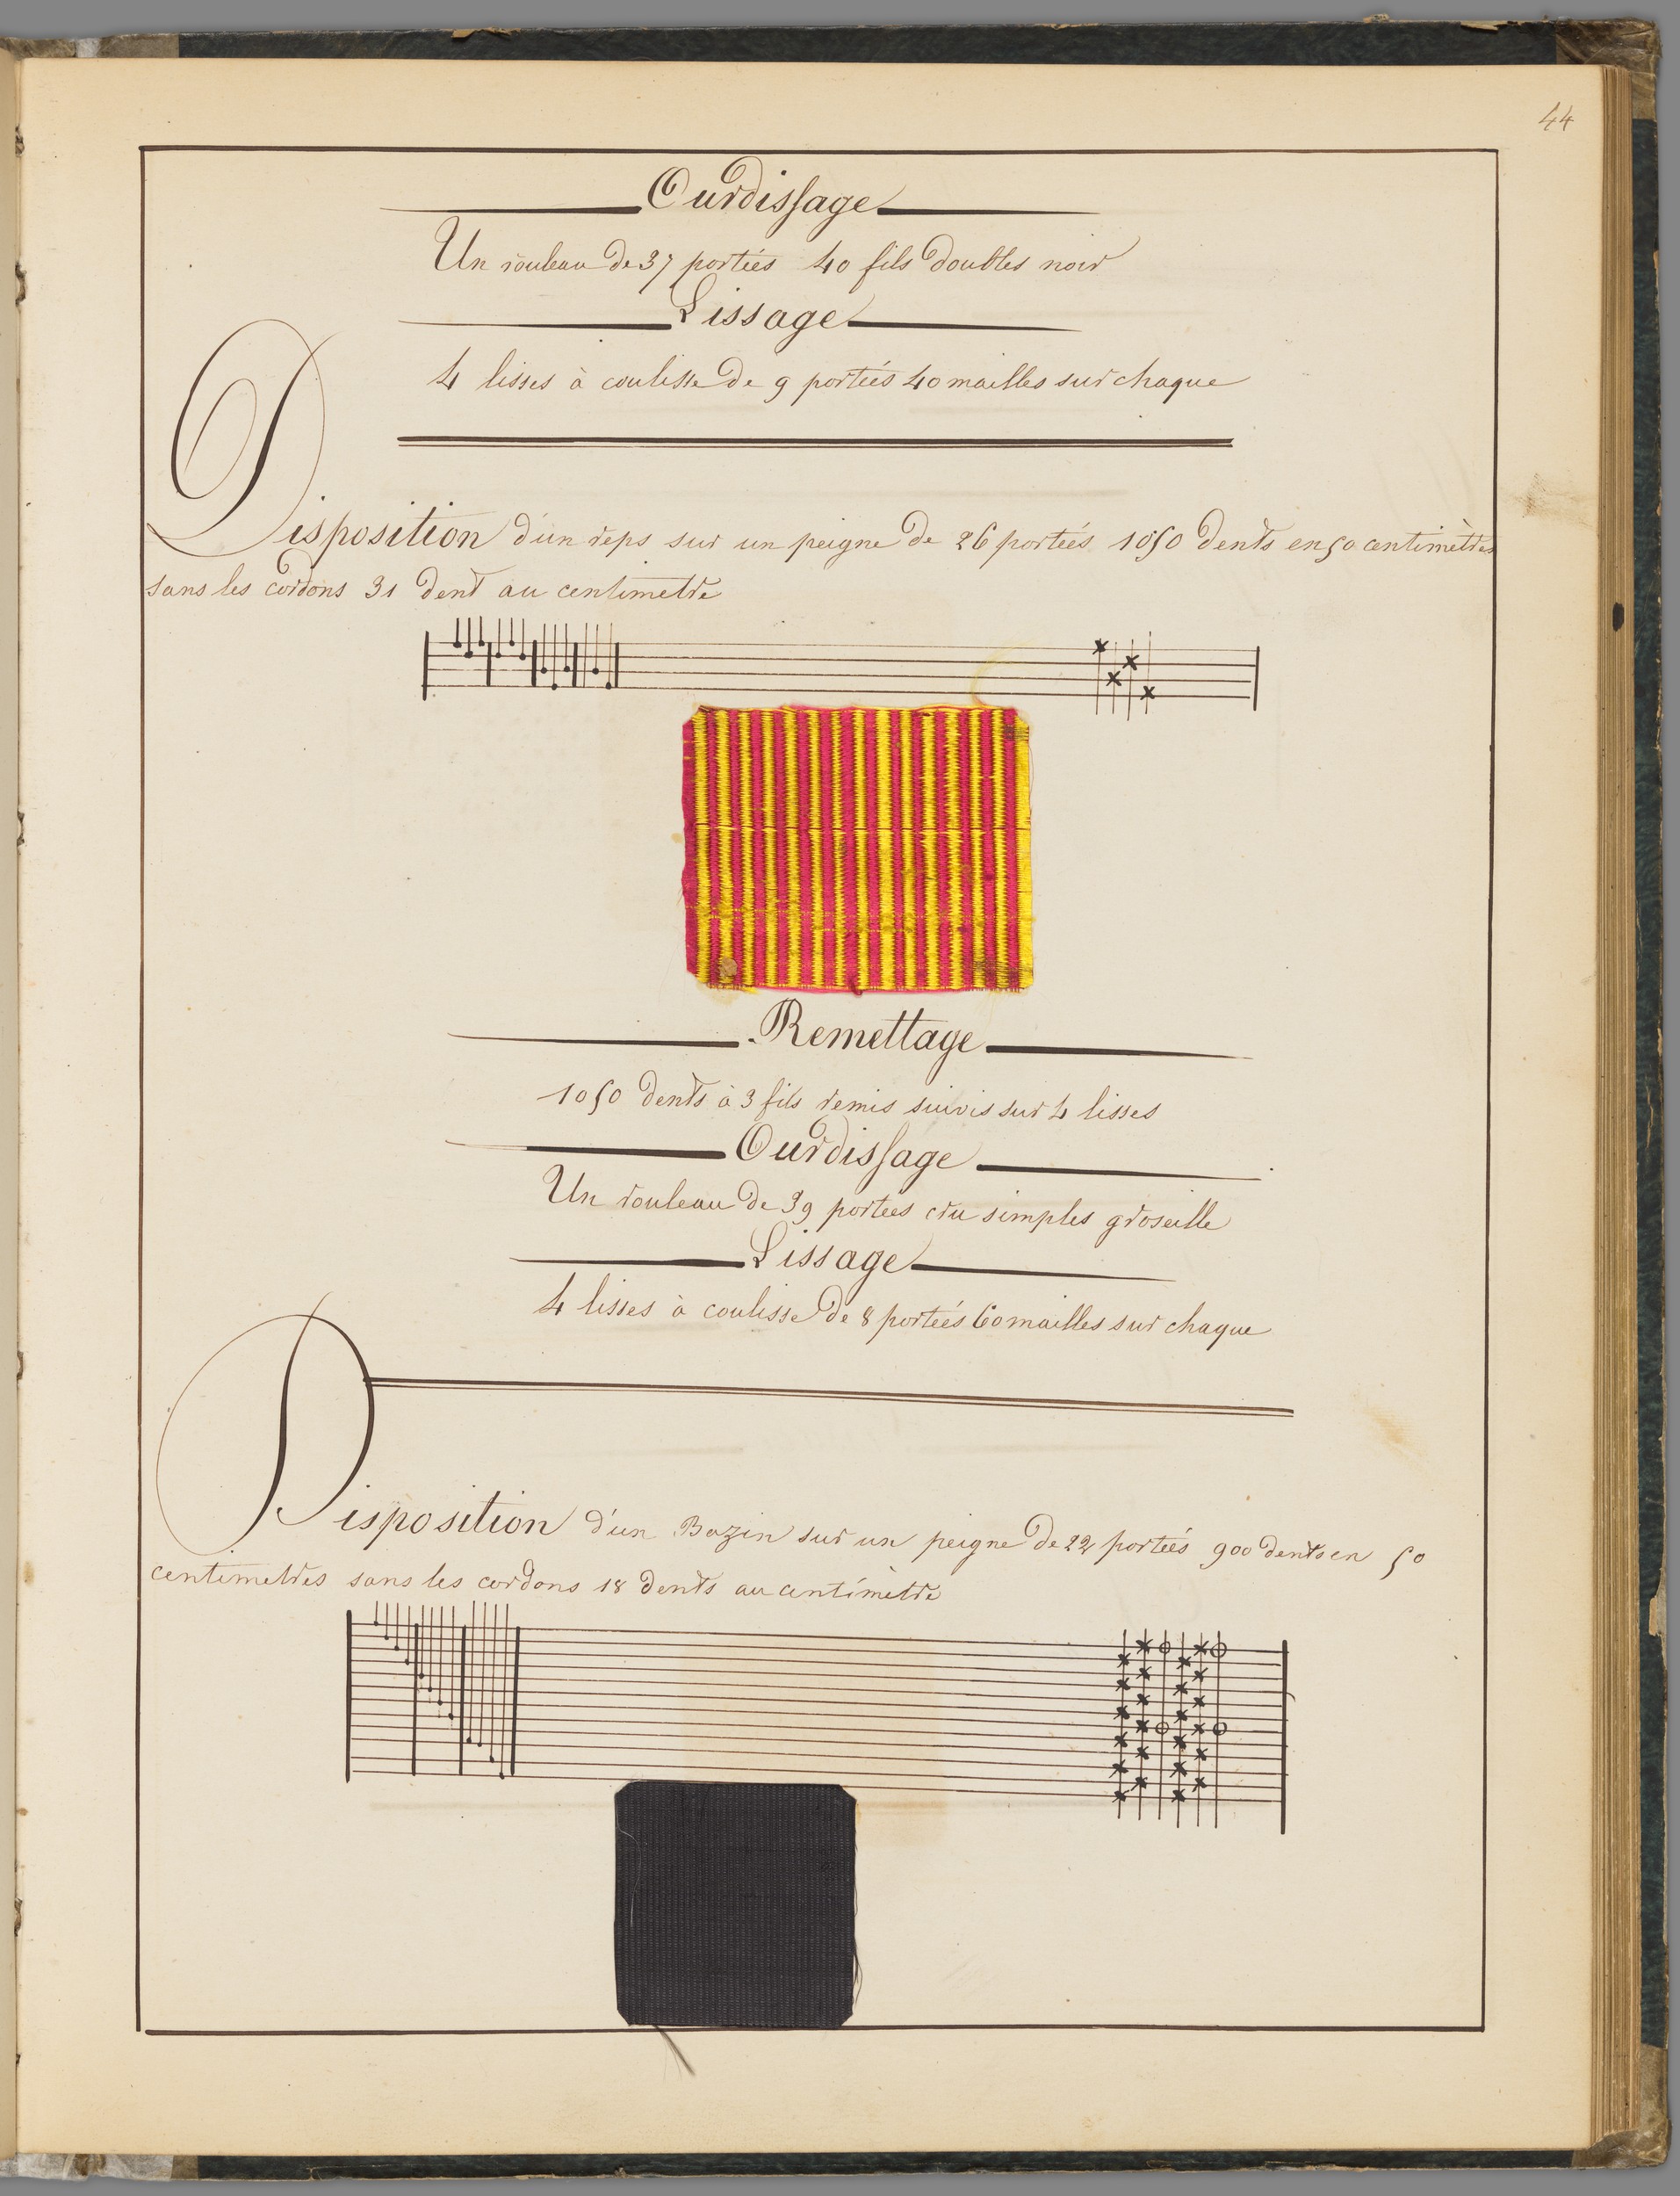 44
Ourdissage
Un rouleau de 37 portées 40 fils doubles noir
Lissage
4 lisses à coulisse de 9 portées 40 mailles sur chaque
Disposition d'un reps sur un peigne de 26 portées 1050 dents en 50 centimètres
sans les cordons 31 dent au centimetre
Remettage
1050 dents à 3 fils remis suivis sur 4 lisses
Ourdissage
Un rouleau de 39 portées cru simples groseille
Lissage
4 lisses à coulisse de 8 portées 60 mailles sur chaque
Disposition d'un Bazin sur un peigne de 22 portées 900 dents en 50
centimetres sans les cordons 18 dents au centimètre